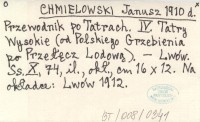 CHMIELOWSKI Janusz 1910 d.
Przewodnik po Tatrach. IV. Tatry
Wysokie (od Polskiego Grzebienia
po Przełęcz Lodową). — Lwów.
Ss. X, 74, il., okł., cm 16 x 12. Na
okładce: Lwów 1912.
BT/008/0341